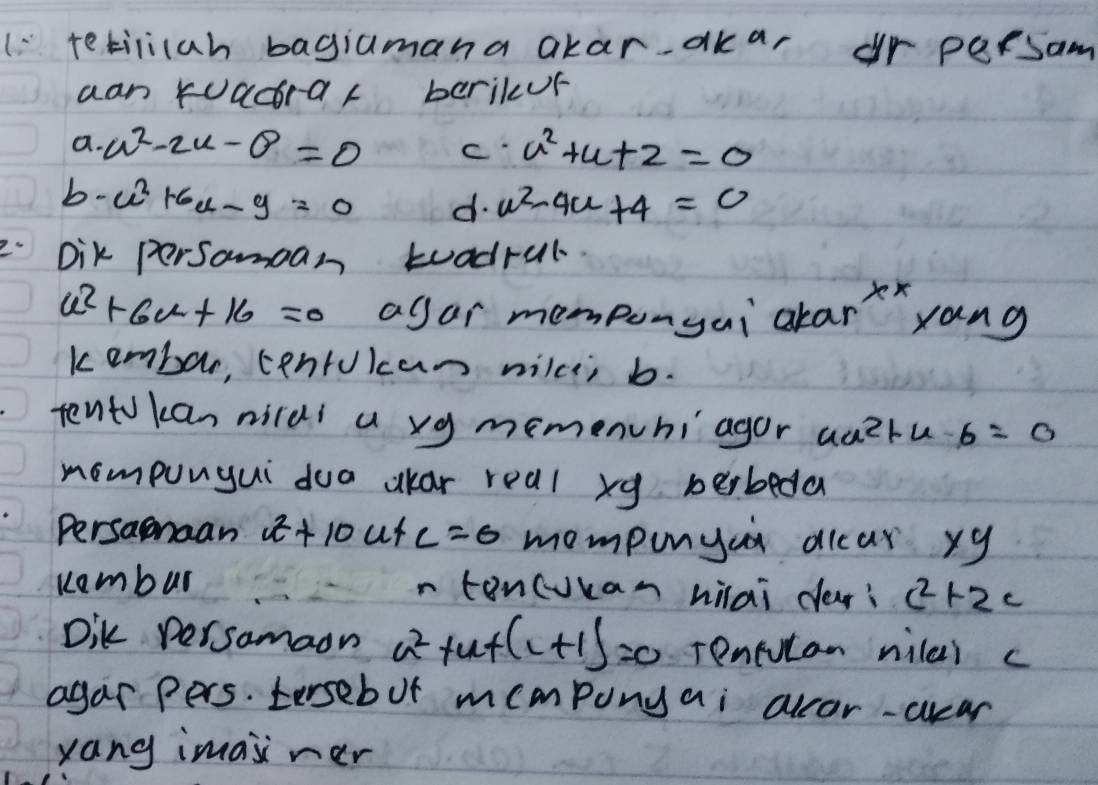 1. telilitah bagiamana akar-akar dr persam
aan kuadrat berikut
a. u²-2u-8=0 c. u²+u+2=0
b. u²+6u-9=0 d. u²-4u+4=0
2. Dik persamaan kuadrat
u²+6u+16=0 agar mempunyai akar xx yang
kembar, tentukan nilai b.
tentukan nilai a yg memenuhi agar au²+u-6=0
mempunyai dua akar real yg berbeda
Persamaan u²+10u+c=0 mempunyai akar yg
kembar n tentukan nilai dari c²+2c
Dik Persamaan u²+u+(c+1)=0 tentukan nilai c
agar pers. tersebut mempunyai akar-akar
yang imaxi ner